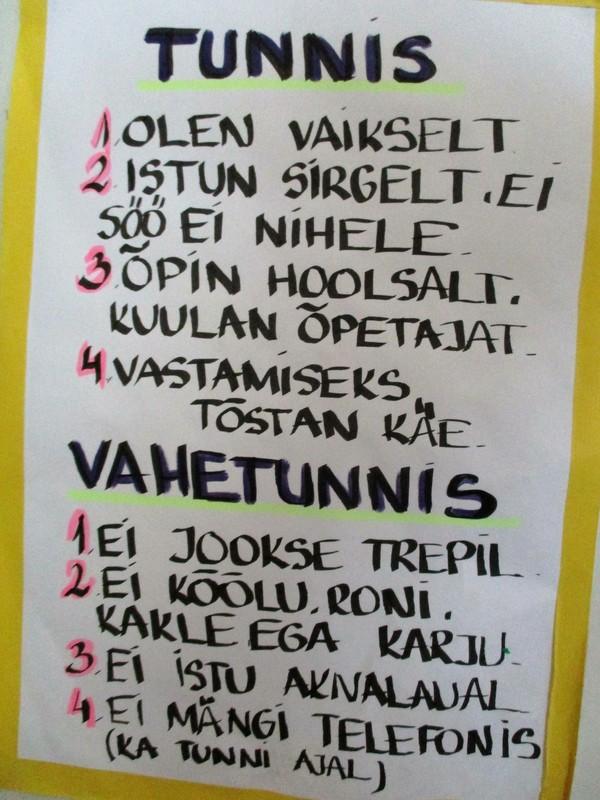 TUNNIS
1. OLEN VAIKSELT.
2. ISTUN SIRGELT. EI
SÖÖ EI NIHELE.
3. ÕPIN HOOLSALT.
KUULAN ÕPETAJAT.
4. VASTAMISEKS
TÕSTAN KÄE.
VAHETUNNIS
1. EI JOOKSE TREPIL.
2. EI KÕÕLU, RONI,
KAKLE EGA KARJU.
3. EI ISTU AKNALAUAL
4. EI MÄNGI TELEFONIS
(KA TUNNI AJAL)